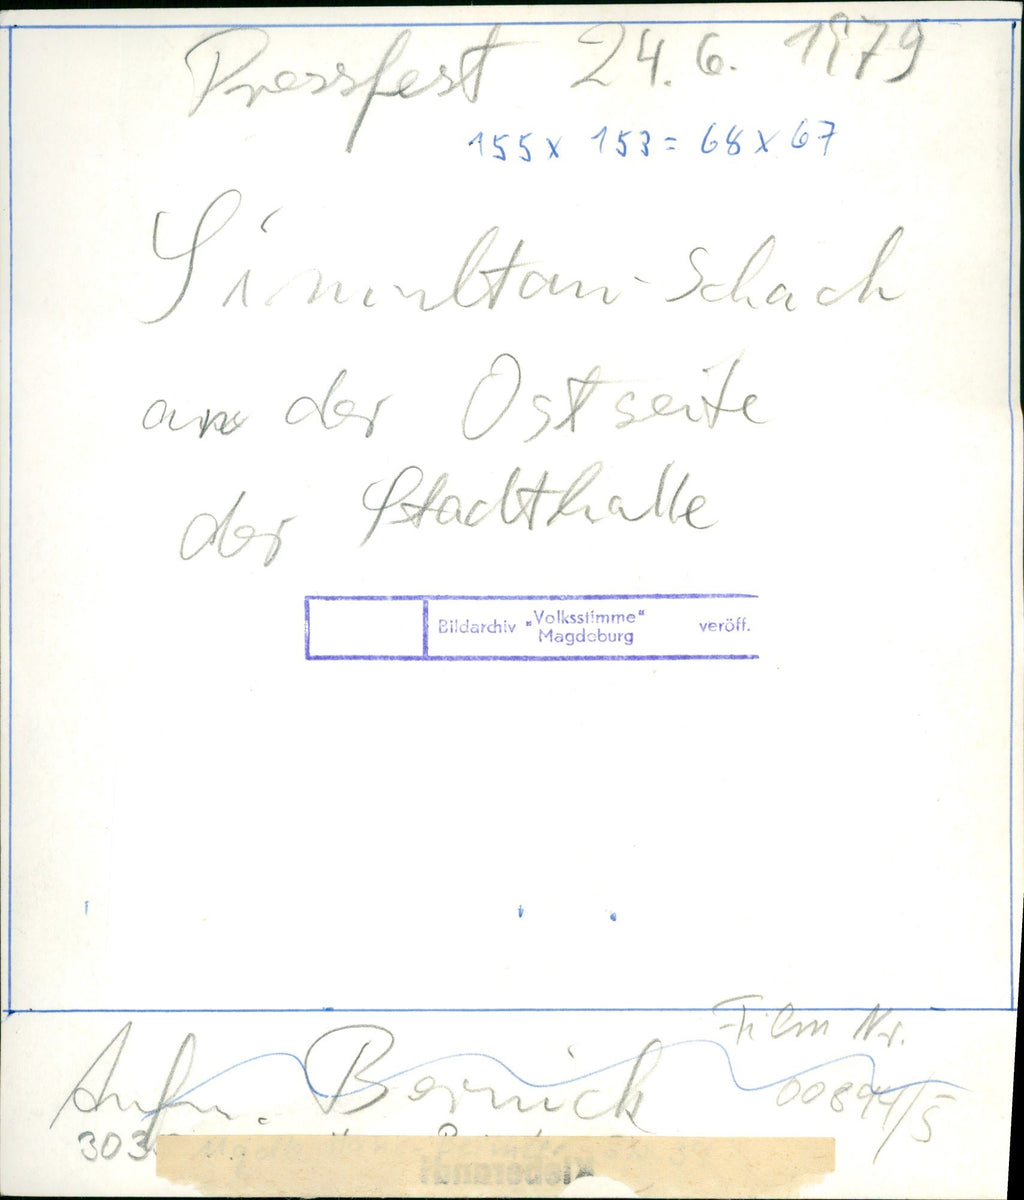 Pressfest 24.6. 1979
155 x 153 = 68 x 67
Simultan-Schach
an der Ostseite
der Stadthalle
Bildarchiv "Volksstimme" Magdeburg veröff.
Film Nr.
Aufn. Bernick
00894/5
303